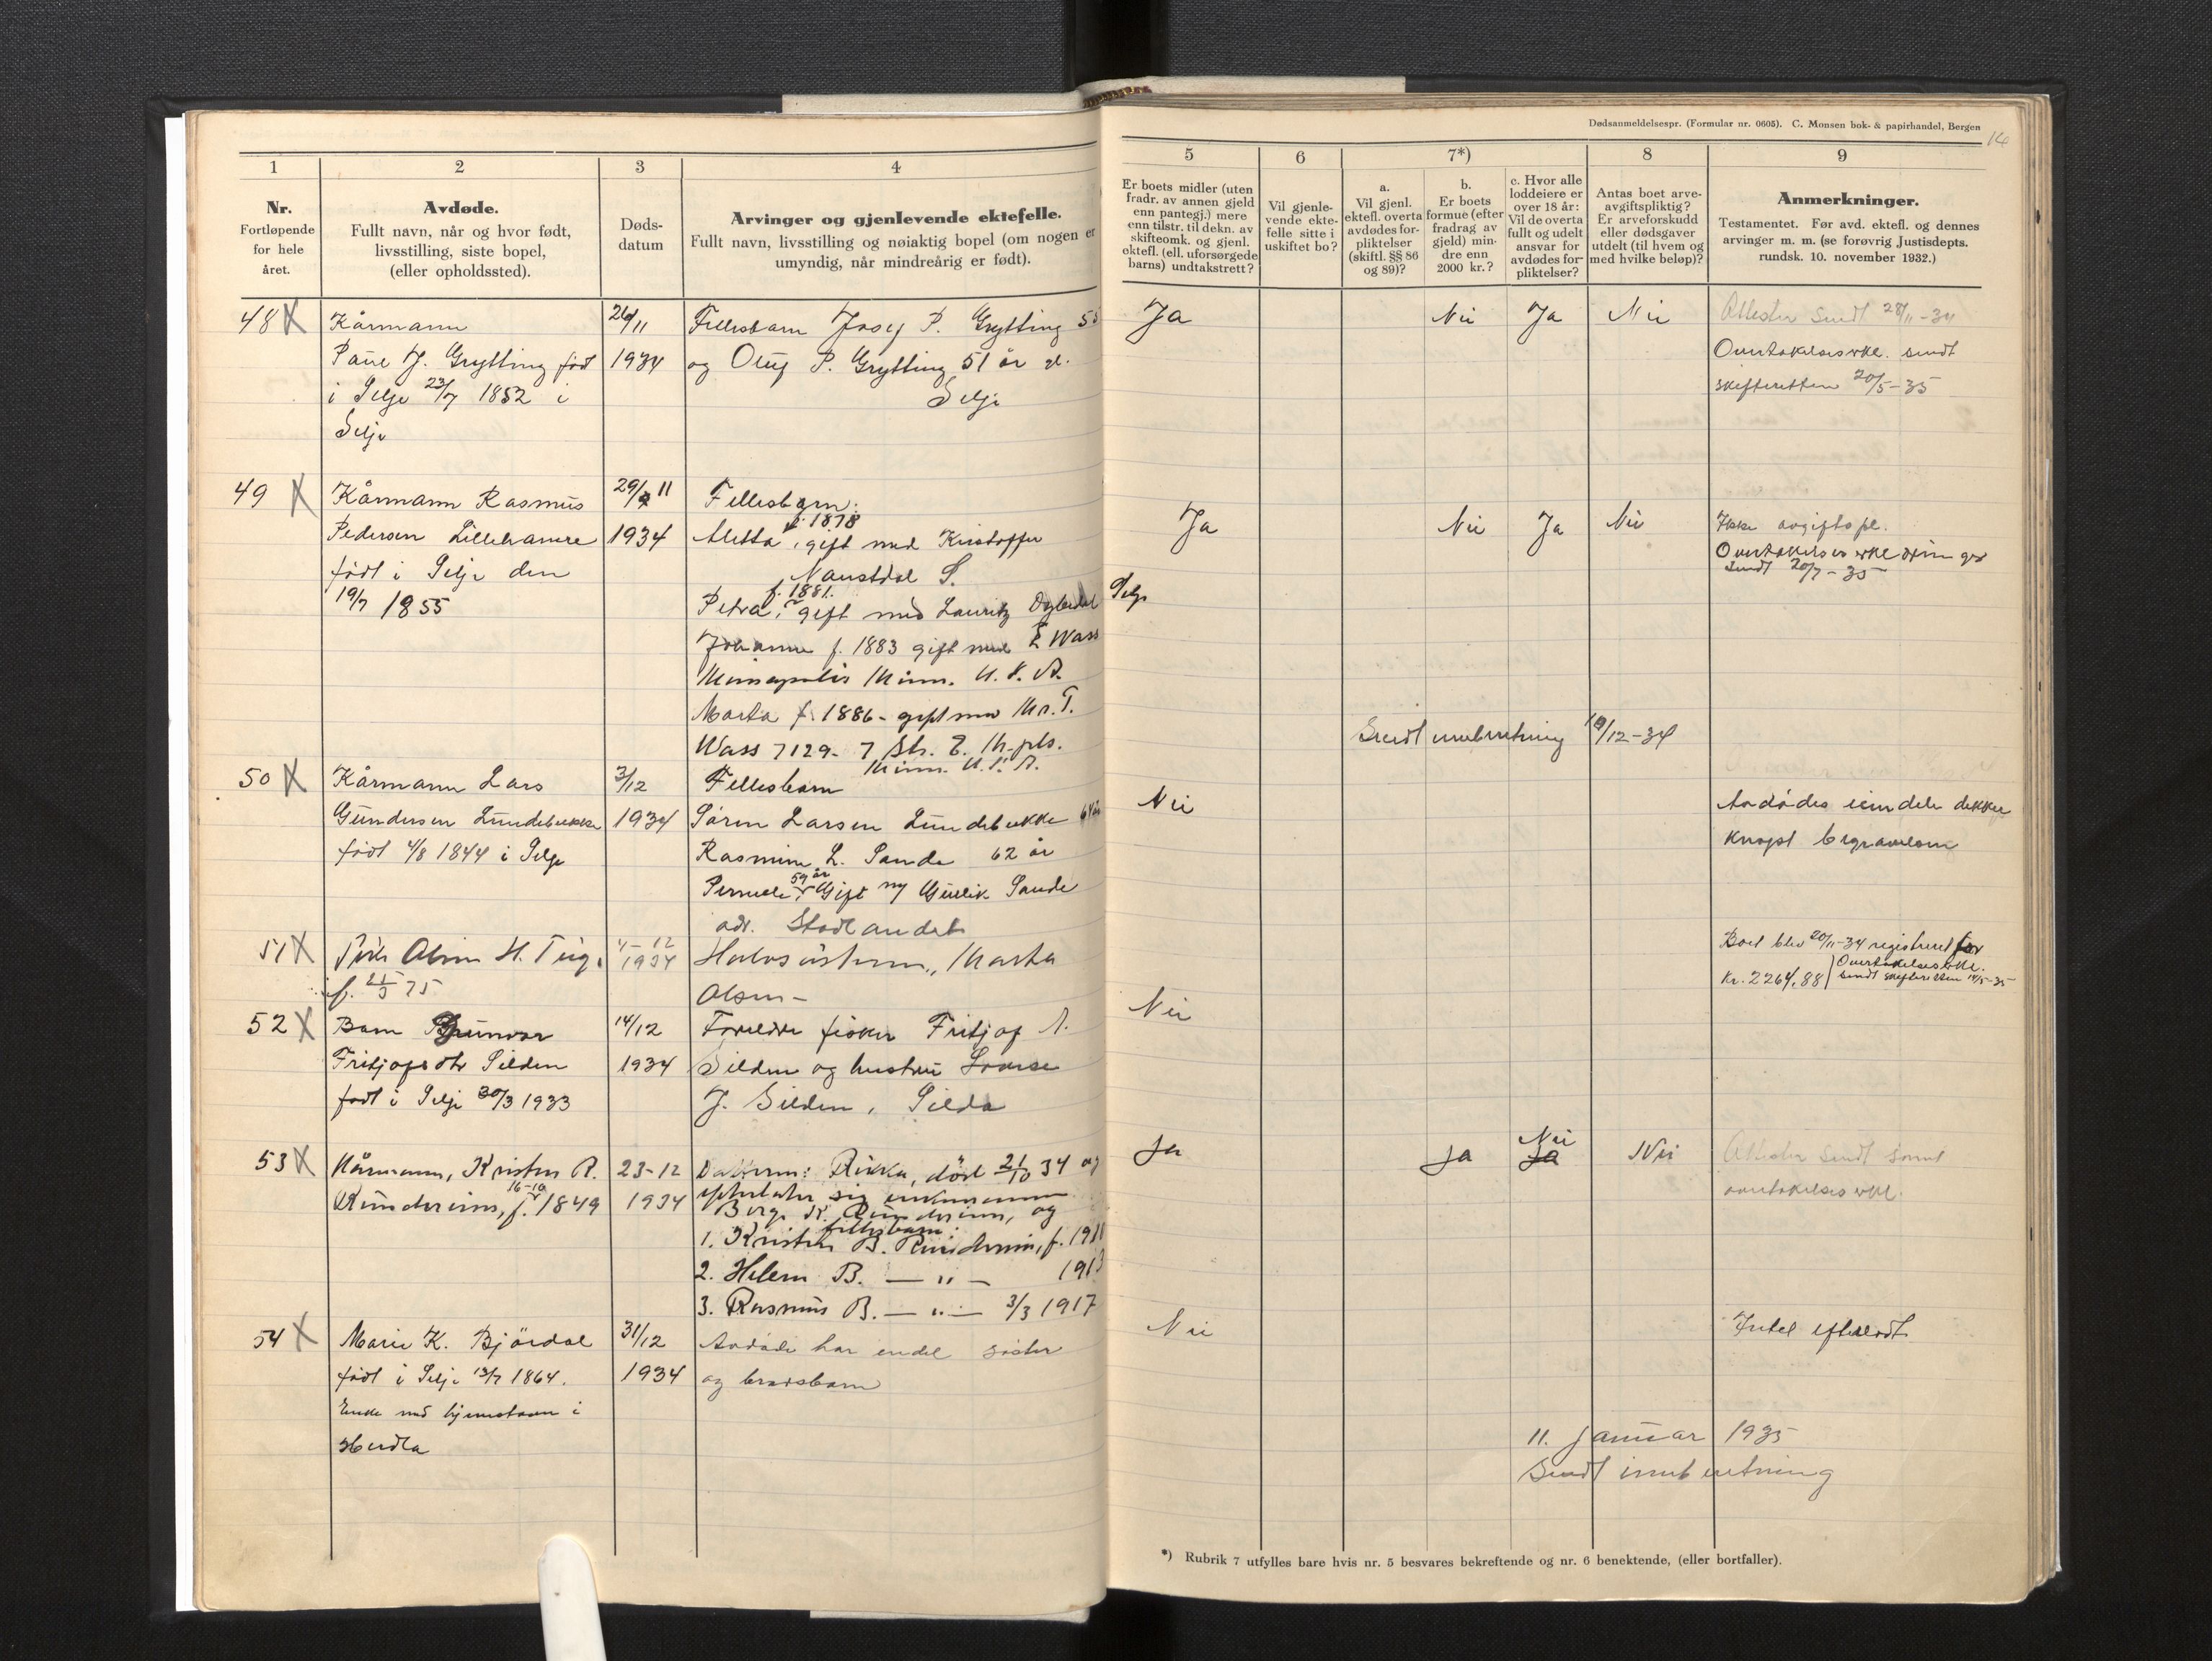 Dødsanmeldelsespr. (Formular nr. 0605). C. Monsen bok- & papirhandel, Bergen
14
1
2
3
4
5
6
7*)
8
9
Nr.
Fortløpende
for hele
året.
Avdøde.
Fullt navn, når og hvor født,
livsstilling, siste bopel,
(eller opholdssted).
Døds-
datum
Arvinger og gjenlevende ektefelle.
Fullt navn, livsstilling og nøiaktig bopel (om nogen er
umyndig, når mindreårig er født).
Er boets midler (uten
fradr. av annen gjeld
enn pantegj.) mere
enn tilstr. til dekn. av
skifteomk. og gjenl.
ektefl. (ell. uforsørgede
barns) undtakstrett?
Vil gjenle-
vende ekte-
felle sitte i
uskiftet bo?
a.
Vil gjenl.
ektefl. overta
avdødes for-
pliktelser
(skiftl. §§ 86
og 89)?
b.
Er boets
formue (efter
fradrag av
gjeld) min-
dre enn
2000 kr.?
c. Hvor alle
loddeiere er
over 18 år:
Vil de overta
fullt og udelt
ansvar for
avdødes for-
pliktelser?
Antas boet arve-
avgiftspliktig?
Er arveforskudd
eller dødsgaver
utdelt (til hvem og
med hvilke beløp)?
Anmerkninger.
Testamentet. Før avd. ektefl. og dennes
arvinger m. m. (se forøvrig Justisdepts.
rundsk. 10. november 1932.)
48 X
Kårmann
Paul J. Grytting født
i Selje 23/7 1852 i
Selje
26/11
1934
Fellesbarn Josef P. Grytting
og Oluf P. Grytting 51 år gl.
Selje
Ja
Nei
Ja
Nei
Attester sendt 28/11-34
Overtakelseserkl. sendt
skifteretten 20/5-35
49 X
Kårmann Rasmus
Pedersen Lillehamre
født i Selje den
19/7 1855
29/11
1934
Fellesbarn:
f. 1878
Aletta, gift med Kristoffer
Naustdal S.
f. 1881.
Petra, gift med Lauritz
Selje
Johanne f. 1883 gift med E Wass
Minneapolis Minn. U. S. A.
Marta f. 1886 - gift med Mr. T.
Wass 7129 - 7 Str. E. M-pls.
Minn. U. S. A.
Ja
Nei
Ja
Nei
Ikke avgiftspl.
Overtakelseserklæringer
sendt 20/7-35
Sendt innberetning 19/12-34
50 X
Kårmann Lars
Gundersen Lundebrekke
født 4/8 1844 i Selje
3/12
1934
Fellesbarn
Søren Larsen Lundebrekke 64 år
Rasmine L. Sande 62 år
59 år
Pernele, Gift m/ Gullik Sande
adr. Stadlandet
Nei
Avdødes eiendeler dekker
knapt begravelsen
51 X
f. 21/5 75
4-12
1934
Halvsøsteren, Marta
Olsen -
Boet blev 20/11-34 registreret for
Kr. 2264,88
Overtakelseserkl.
sendt skifteretten 14/5-35
52 X
Barn Gunvor
Fritjofsdtr Silden
født i Selje 30/3 1933
14/12
1934
Foreldre fisker Fritjof A.
Silden og hustru Lovise
J. Silden, Silda
Nei
53 X
Kårmann, Kristen R.
16-10
Rundereim, f. 1849
23-12
1934
Datteren: Rikka, død 21/10 34 og
efterlater sig enkemannen
Berge K. Rundereim, og
fellesbarn:
1. Kristen B. Rundereim, f.
2. Helene B. — " — 1913
3. Rasmus B. — " — 3/3 1917
Ja
Ja
Nei
Ja
Nei
Attester sendt samt
overtakelseserkl.
54 X
Marie K. Bjørdal
født i Selje 13/7 1864.
Enke med hjemstavn i
Herdla
31/12
1934
Avdøde har endel søster
og brorsbarn
Nei
Intet efterlatt
11. januar 1935
Sendt innberetning
*) Rubrik 7 utfylles bare hvis nr. 5 besvares bekreftende og nr. 6 benektende, (eller bortfaller).